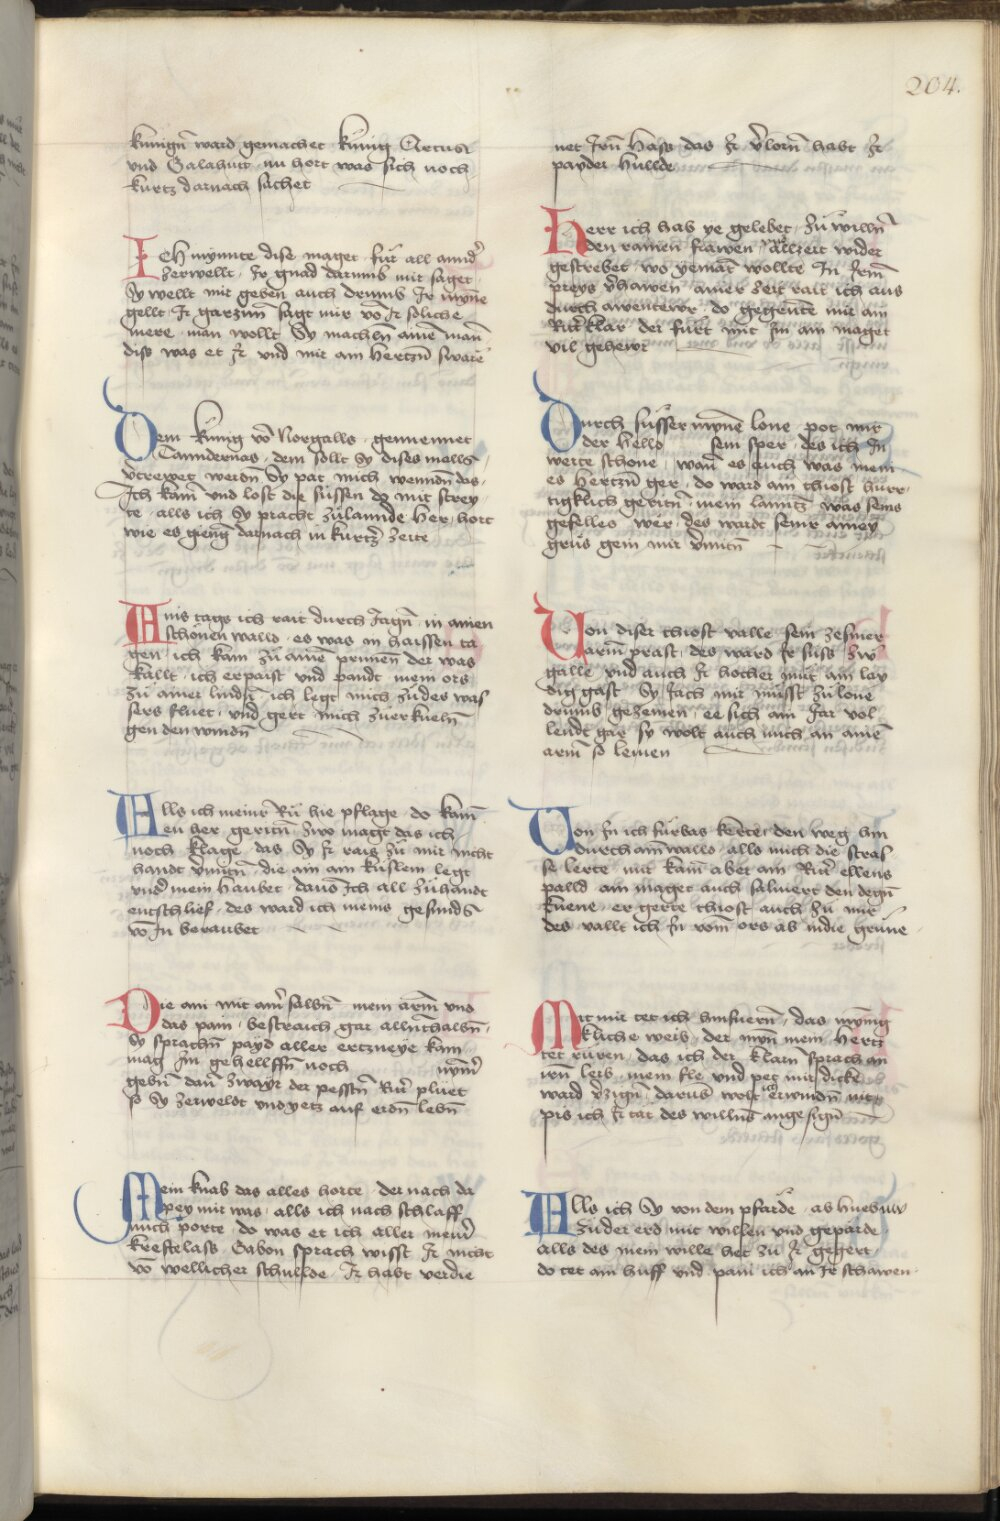 204.
kunigin ward gemachet kunig Artus
und Galahutt nu hort was sich noch
kurtz darnach sachet
Ich mynnte dise maget fur all annd̕
zerwellt Ir gnad darumb mir saget
Sy wellt mir geben auch drumb Ir myne
gellt Ir garzunn sagt mir vō Ir soliche
mere man wollt Sy machen ainē man
diss was er Ir und mir am hertzn̄ sware
Dem kunig vō Norgalls genennet
Tanndernas dem sollt Sy dises mells
vereret werdn̄ Sy pat mich wenndn̄ das
Ich kam und lost die sussen dz mit strey
te alls ich Sy pracht zulannde her hort
wie es gieng darnach in kurtzer zeite
Ains tags ich rait durch Jagn̄ in ainen
schönen walld es was in haissen ta
gen ich kam zu ainē prunnen der was
kallt ich erpaist und pandt mein ors
zu ainer lindn̄ ich legt mich zudes was
sers fluet und gert mich zuerkueln̄
gen den windn̄
Alls ich meinr Ru hie pflage do kam̄
en her geritn̄ zwo magt das ich
noch klage das Sy Ir rais zu mir nicht
handt v̕mitn̄ die ain ain kusslein legt
und̕ mein haubet dauō Ich all zuhandt
entschlief des ward ich meins gesunds
vō Jn beraubet
Die ain mit ain̕ salbn̄ mein arm̄ und
das pain bestraich gar allnthalbn̄
Sy sprachn̄ payd aller ertzneye kain
mag Im gehellffn̄ noch nym̄
gebn̄ dan̄ zwayr der pesstn̄ Rit̕ pluet
so Sy zerwelt und yetz auf erdn̄ lebn̄
Mein knab das alles horte der nach da
pey mir was alls ich nach schlaff
mich porte do was er ich aller mein̕
kreffte lass Gabon sprach wisst Ir nicht
vō wellicher schullde Ir habt verdie
net Irn̄ hass das Ir v̕lorn̄ habt Ir
payder hullde
Herr ich hab ye gelebet zu willn̄
den rainen frawen allzeit wider
gestrebet wo yeman̄t wollte In Irn̄
preys v̕hawen ainer zeit rait ich aus
durch awentewr do gegente mir ain
Rit̕ klar der furt mit Im ain maget
vil gehewr
Durch susser mynē lone pot mir
der hello sein sper des ich In
werte schone wan̄ es auch was mein
es hertzn̄ ger do ward ain thiost hur
tigklich geritn̄ mein lanntz was seins
gefelles wer des wardt seinr amey
grus gein mir v̕mitn̄
Von diser thiost valle sein zesmer
arm̄ prast des ward Ir suss zw
galle und auch Ir hocher mut ain lay
dig gast Sy Jach mir muesst zulone
drumb gezemen ee sich ain Jar vol
lendt gar sy wolt auch mich an ainē
arm̄ so lemen
Von In ich furbas kerte den weg hin
durch ain walld alls mich die stras
se lerte mit kam aber ain Rit̕ ellens
palld ain maget auch saluiert den degn̄
kuene er gerte thiost auch zu mir
des vallt ich In vom ors ab indie grune
Mit mir tet ich hinfuern̄ das mynig
kliche weib der myn̄ mein hertz
tet ruren das ich der klarn̄ sprach an
irn̄ leib mein fle und pet mir dicke
ward v̕zign̄ darumb wolt ich erwindn̄ nit
pis ich Ir tat des willns angesign̄
Alls ich Sy von dem pfarde abhueb
zuder erd mit willen und geparde
alls des mein wille het zu Ir gegert
do tet ain huff und pain ich an Ir schawen